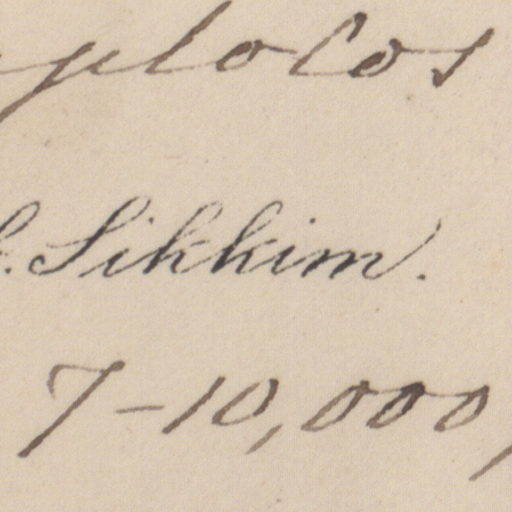 plocos
. Sikkim.
7-10,000,